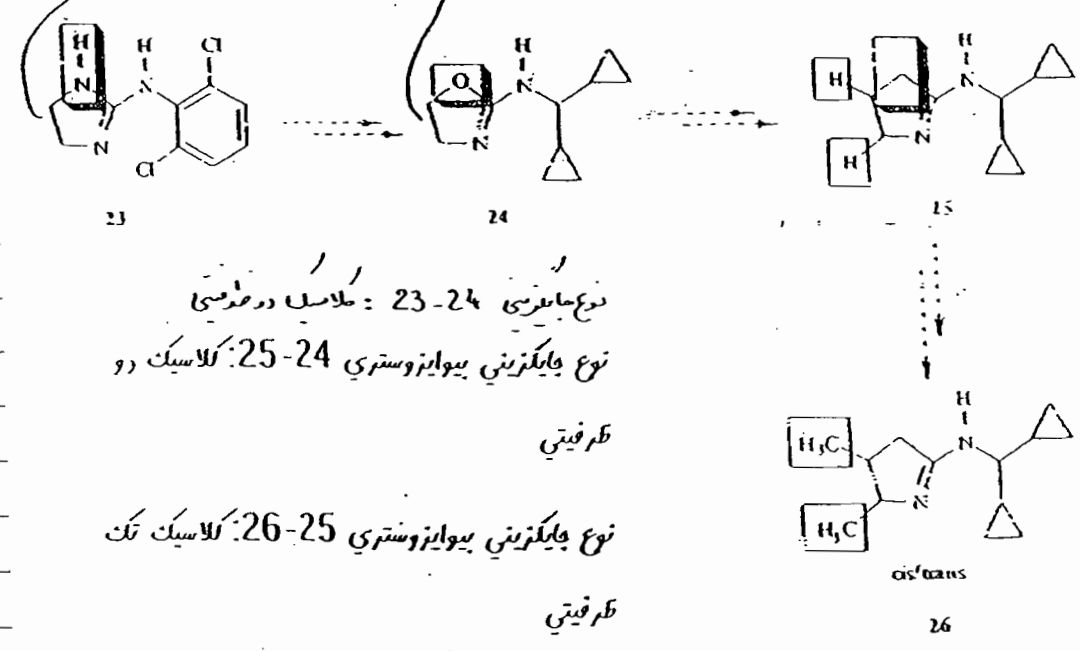 H
N
H
N
Cl
N
Cl
23
O
H
N
N
24
H
H
H
N
N
25
نوع جایگزینی 24-23 : کلاسیک دو ظرفیتی
نوع جايگزيني بيوايزوستري 24-25: كلاسيك دو
ظرفيتي
نوع جايگزيني بيوايزوستري 25-26: كلاسيك تك
ظرفيتي
H₃C
H₃C
H
N
N
cis/trans
26